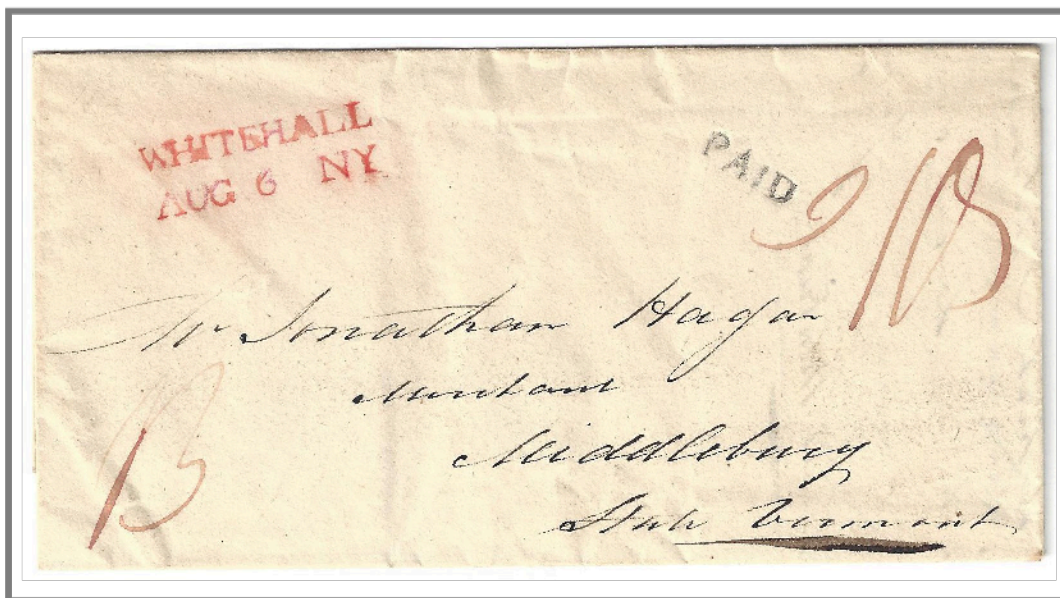 WHITEHALL
AUG 6 NY
PAID
Mr Jonathan Hagar
Merchant
Middlebury
State Vermont